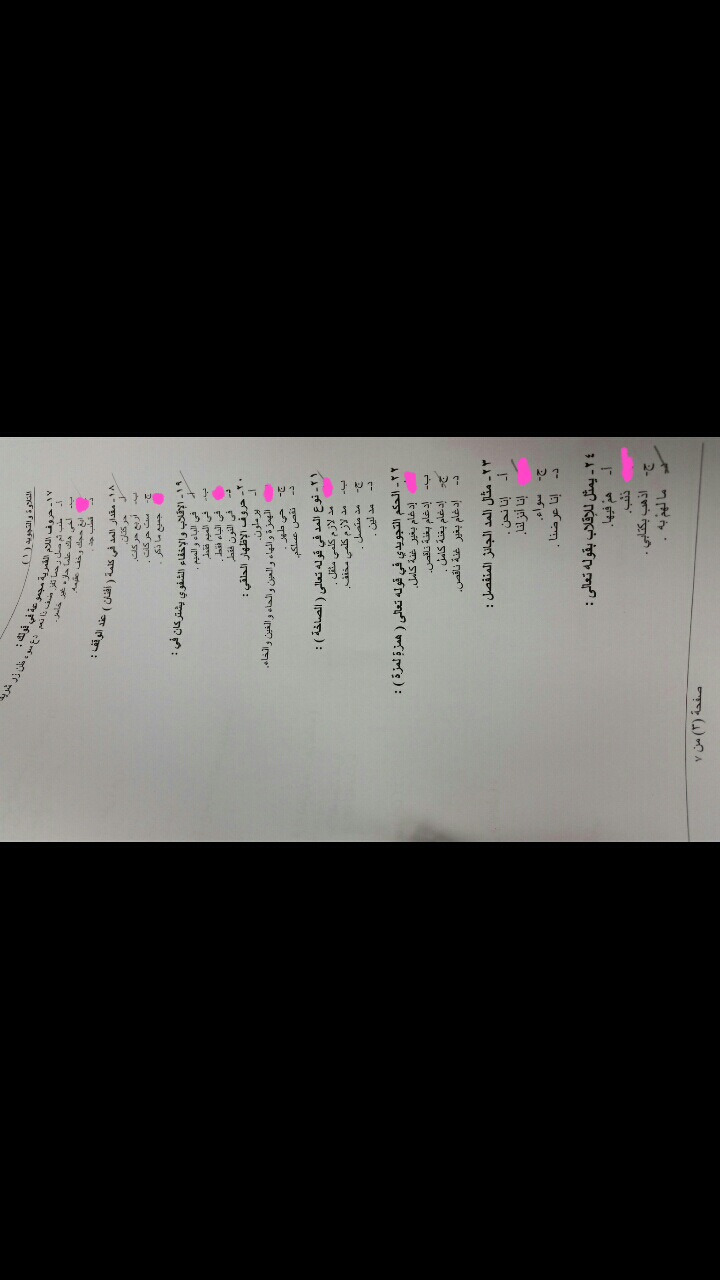 التلاوة والتجويد ( ١ )
١٧- حروف اللام القمرية مجموعة في قولك :
أ- طب ثم صل رحما تفز ضف ذا نعم دع سوء ظن زر شريفا
ب-
ج- ابغ حجك وخف عقيمه.
د- قطب جد.
١٨- مقدار المد في كلمة ( أفنان ) عند الوقف :
أ- حركتان.
ب- أربع حركات.
ج- ست حركات.
د- جميع ما ذكر.
١٩- الإقلاب والإخفاء الشفوي يشتركان في :
أ- في الباء والميم.
ب- في الميم فقط.
ج- في الباء فقط.
د- في النون فقط.
٢٠- حروف الإظهار الحلقي :
أ- يرملون.
ب- الهمزة والهاء والعين والحاء والغين والخاء.
ج- حي طهر.
د- نقص عسلكم.
٢١- نوع المد في قوله تعالى ( الصاخة ) :
أ- مد لازم كلمي مثقل.
ب- مد لازم كلمي مخفف.
ج- مد متصل.
د- مد لين.
٢٢- الحكم التجويدي في قوله تعالى ( همزةٍ لمزة ) :
أ- إدغام بغير غنة كامل.
ب- إدغام بغنة ناقص.
ج- إدغام بغنة كامل.
د- إدغام بغير غنة ناقص.
٢٣- مثل المد الجائز المنفصل :
أ- إنا نحن.
ب- إنا أنزلنا.
ج- سواء.
د- إنا عرضنا.
٢٤- يمثل للإقلاب بقوله تعالى :
أ- هم فيها.
ب- ذنب.
ج- اذهب بكتابي.
د- ما لهم به.
صفحة (٣) من ٧